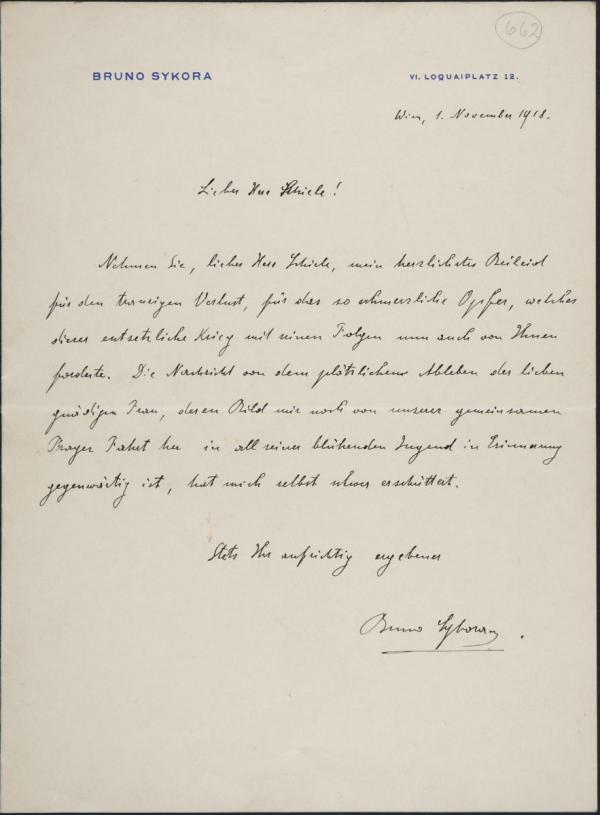 662
BRUNO SYKORA
VI. LOQUAIPLATZ 12.
Wien, 1. November 1918.
Lieber Herr Schiele!
Nehmen Sie, lieber Herr Schiele, mein herzlichstes Beileid
für den traurigen Verlust, für das so schmerzliche Opfer, welches
dieser entsetzliche Krieg mit seinen Folgen nun auch von Ihnen
forderte. Die Nachricht von dem plötzlichen Ableben der lieben
gnädigen Frau, deren Bild mir noch von unserer gemeinsamen
Prager Fahrt her in all seiner blühenden Jugend in Erinnerung
gegenwärtig ist, hat mich selbst schwer erschüttert.
Stets Ihr aufrichtig ergebener
Bruno Sykora.